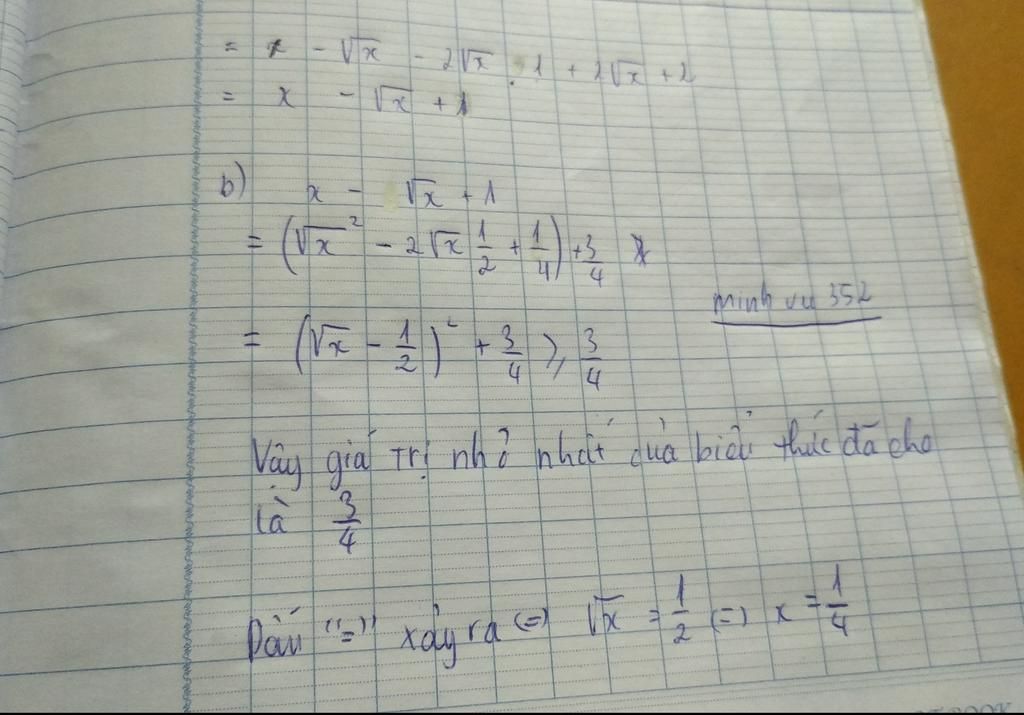 = x - √x - 2√x . 1 + 2√x + 2
= x - √x + 1
b) x - √x + 1
= (√x² - 2√x 1/2 + 1/4) + 3/4
minh vu 352
= (√x - 1/2)² + 3/4 ⩾ 3/4
Vậy giá trị nhỏ nhất của biểu thức đã cho
là 3/4
Dấu "=" xảy ra (=) √x = 1/2 (=) x = 1/4